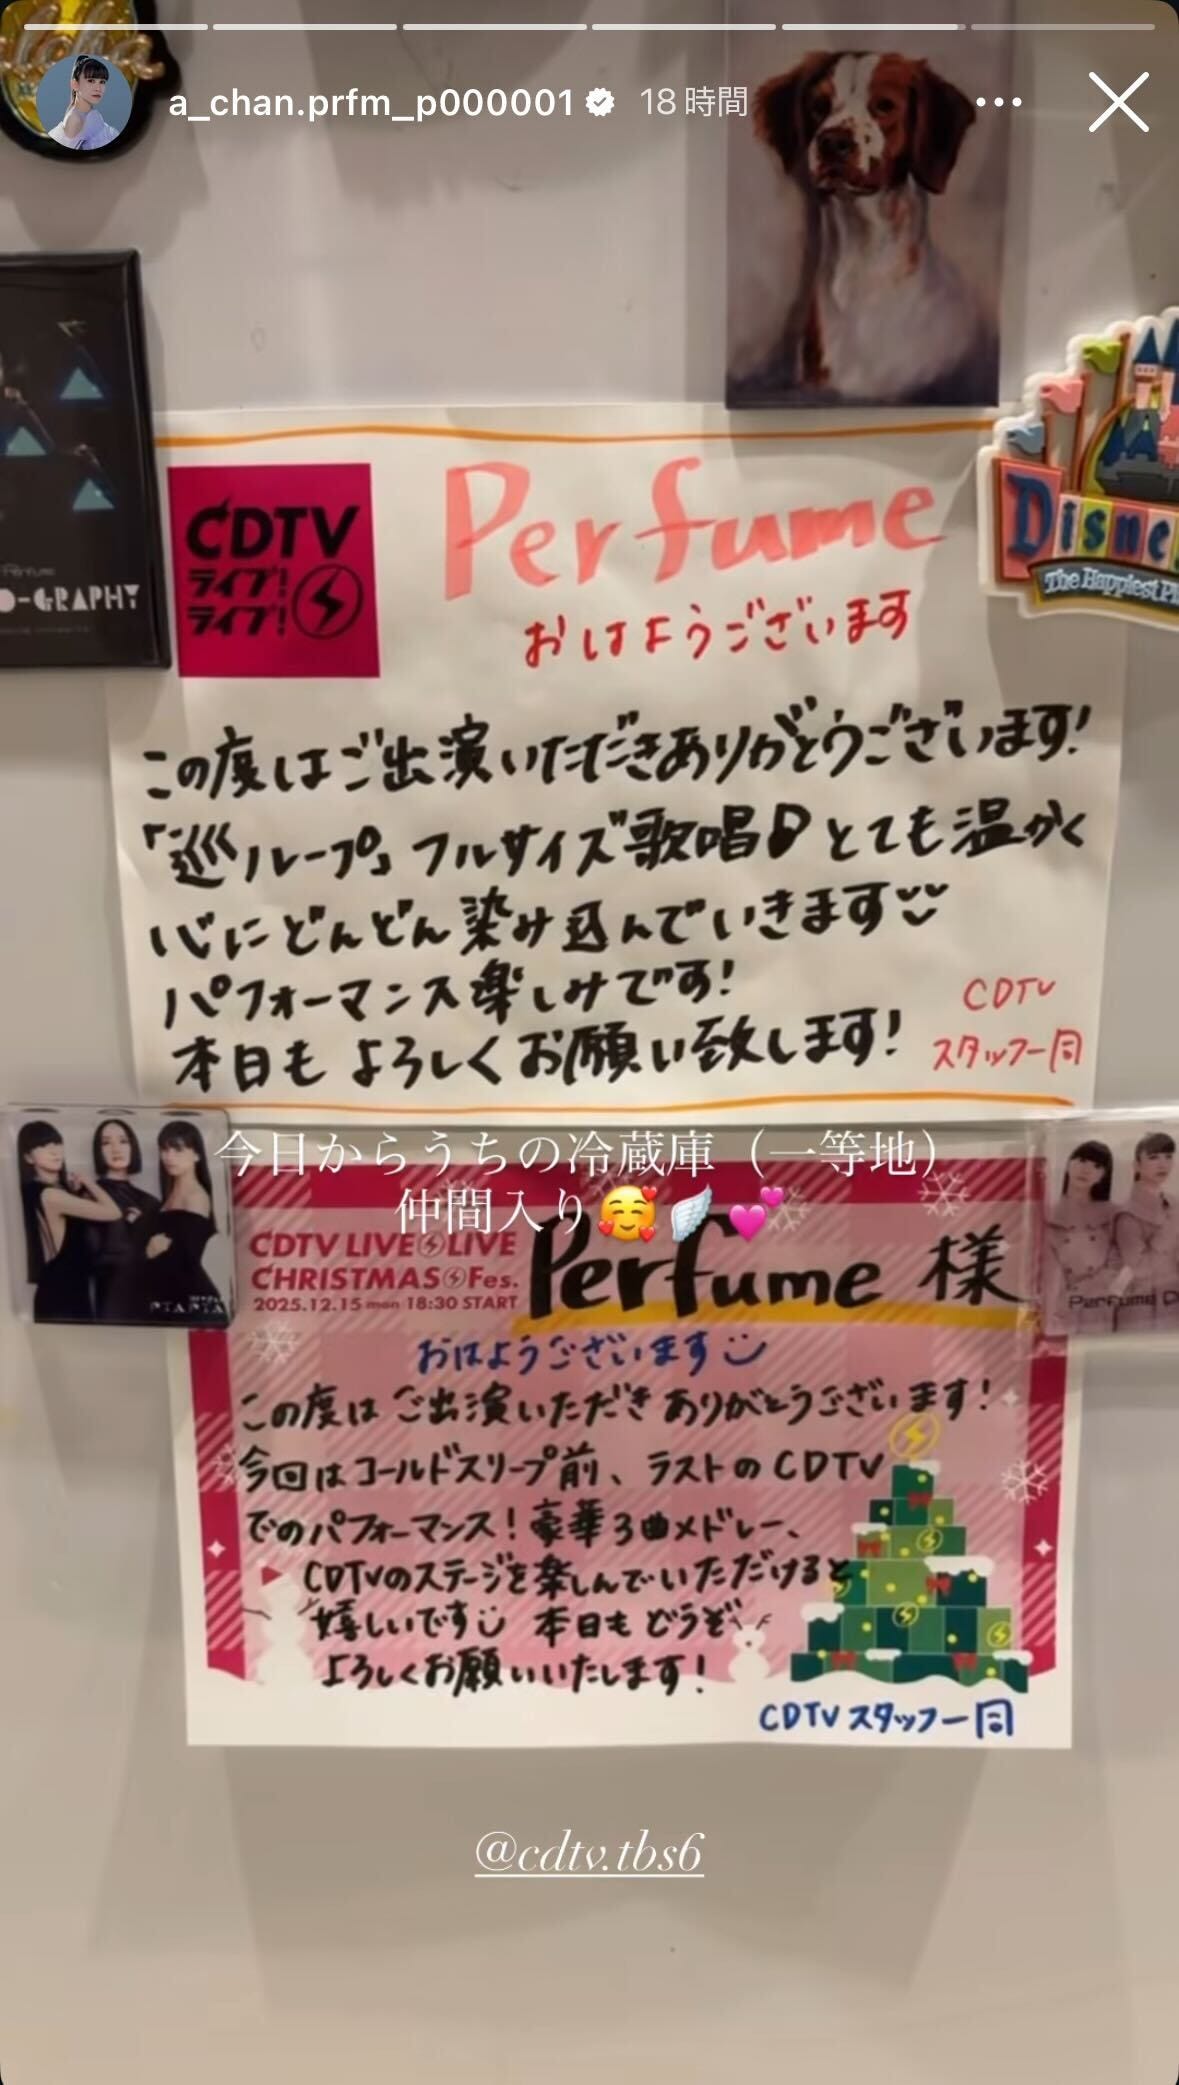 a_chan.prfm_p000001 18時間
CDTV
ライブ!
ライブ!
Perfume
おはようございます
-GRAPHY
Disne
The Happiest Pl
この度はご出演いただきありがとうございます!
「巡ループ」フルサイズ歌唱♪とても温かく
心にどんどん染み込んでいきます
パフォーマンス楽しみです!
本日もよろしくお願い致します!
CDTV
スタッフ一同
今日からうちの冷蔵庫（一等地）
仲間入り🥰🪽💕
CDTV LIVE LIVE
CHRISTMAS Fes.
2025.12.15 mon 18:30 START
Perfume 様
おはようございます
この度はご出演いただきありがとうございます!
今回はコールドスリープ前、ラストのCDTV
でのパフォーマンス!豪華3曲メドレー、
CDTVのステージを楽しんでいただけると
嬉しいです 本日もどうぞ
よろしくお願いいたします!
CDTVスタッフ一同
Perfume
@cdtv.tbs6